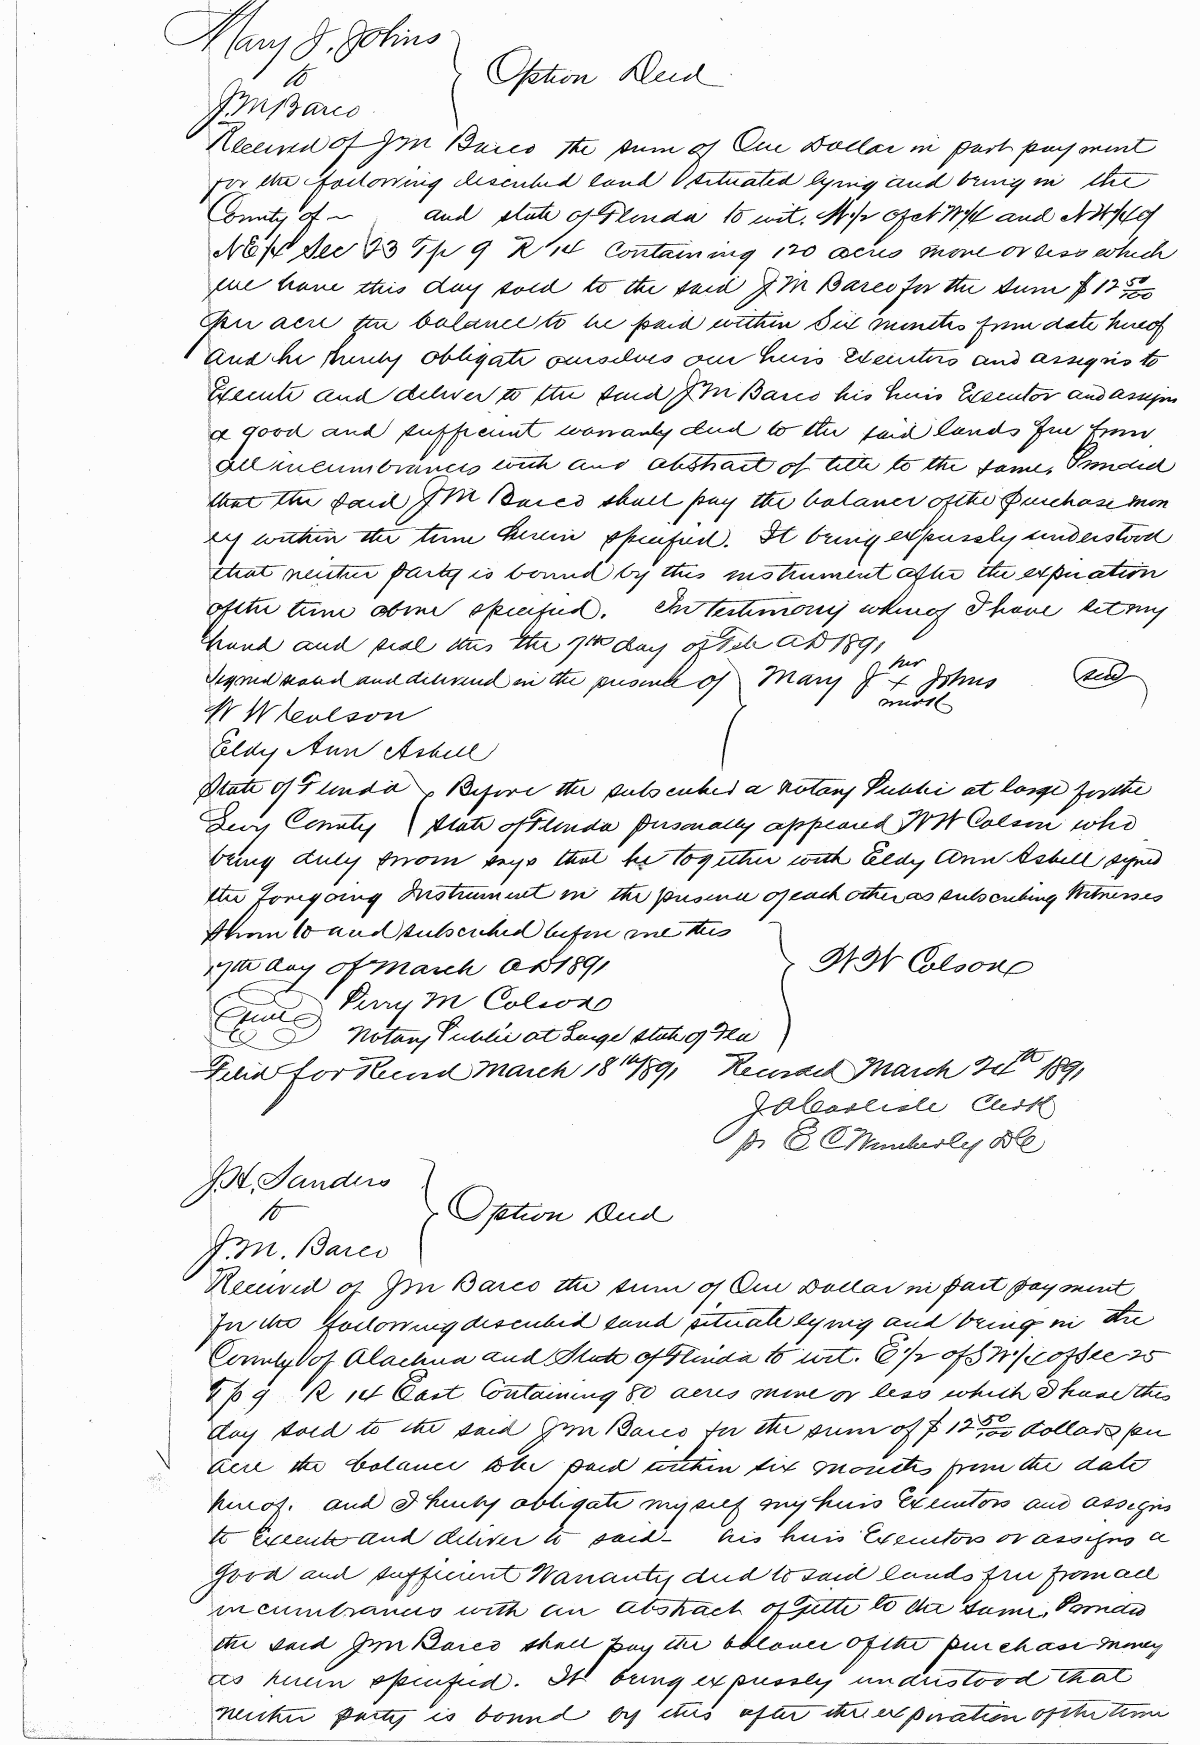 Mary J. Johns
to
J.M Barco
Option Deed
Received of J M Barco the sum of One Dollar in part payment
for the following described land situated lying and being in the
County of ~ and state of Florida to wit. W 1/2 of N W 1/4 and N W 1/4 of
N E 1/4 Sec 23 Tp 9 R 14 Containing 120 acres more or less which
we have this day sold to the said J M Barco for the sum $12 50/100
per acre the balance to be paid within Six months from date hereof
and he hereby obligate ourselves our heirs Executors and assigns to
Execute and deliver to the said J M Barco his heirs Executor and assigns
a good and sufficient warranty deed to the said lands free from
all incumbrances with and abstract of title to the same, Provided
that the said J M Barco shall pay the balance of the purchase mon
ey within the time herein specified. It being expressly understood
that neither party is bound by this instrument after the expiration
of the time above specified. In testimony whereof I have set my
hand and seal this the 7th day of Feb AD 1891
Signed seald and delivered in the presence of Mary J her x mark Johns seal
W W Colson
Eldy Ann Asbell
State of Florida Before the subscribed a Notary Public at large for the
Levy County State of Florida personally appeared W W Colson who
being duly sworn says that he together with Eldy Ann Asbell signed
the foregoing Instrument in the presence of each other as subscribing Witnesses
Sworn to and subscribed before me this
17th day of March AD 1891 W W Colson
Seal Perry M Colson
Notary Public at Large State of Fla
Filed for Record March 18th 1891 Recorded March 24th 1891
J A Carlisle Clerk
pr E C Wimberley D C
J.H. Sanders
to
J.M. Barco
Option Deed
Received of J M Barco the sum of One Dollar in part payment
for the following described land situate lying and being in the
County of Alachua and State of Florida to wit. E 1/2 of S W 1/4 of Sec 25
Tp 9 R 14 East Containing 80 acres more or less which I have this
day sold to the said J M Barco for the sum of $12 50/100 dollars per
acre the balance to be paid within six months from the date
hereof. and I hereby obligate myself my heirs Executors and assigns
to Execute and deliver to said - his heirs Executors or assigns a
good and sufficient Warranty deed to said lands free from all
incumbrances with an abstract of Title to the same, Provided
the said J M Barco shall pay the balance of the purchase money
as herein specified. It being expressly understood that
neither party is bound by this after the expiration of the time